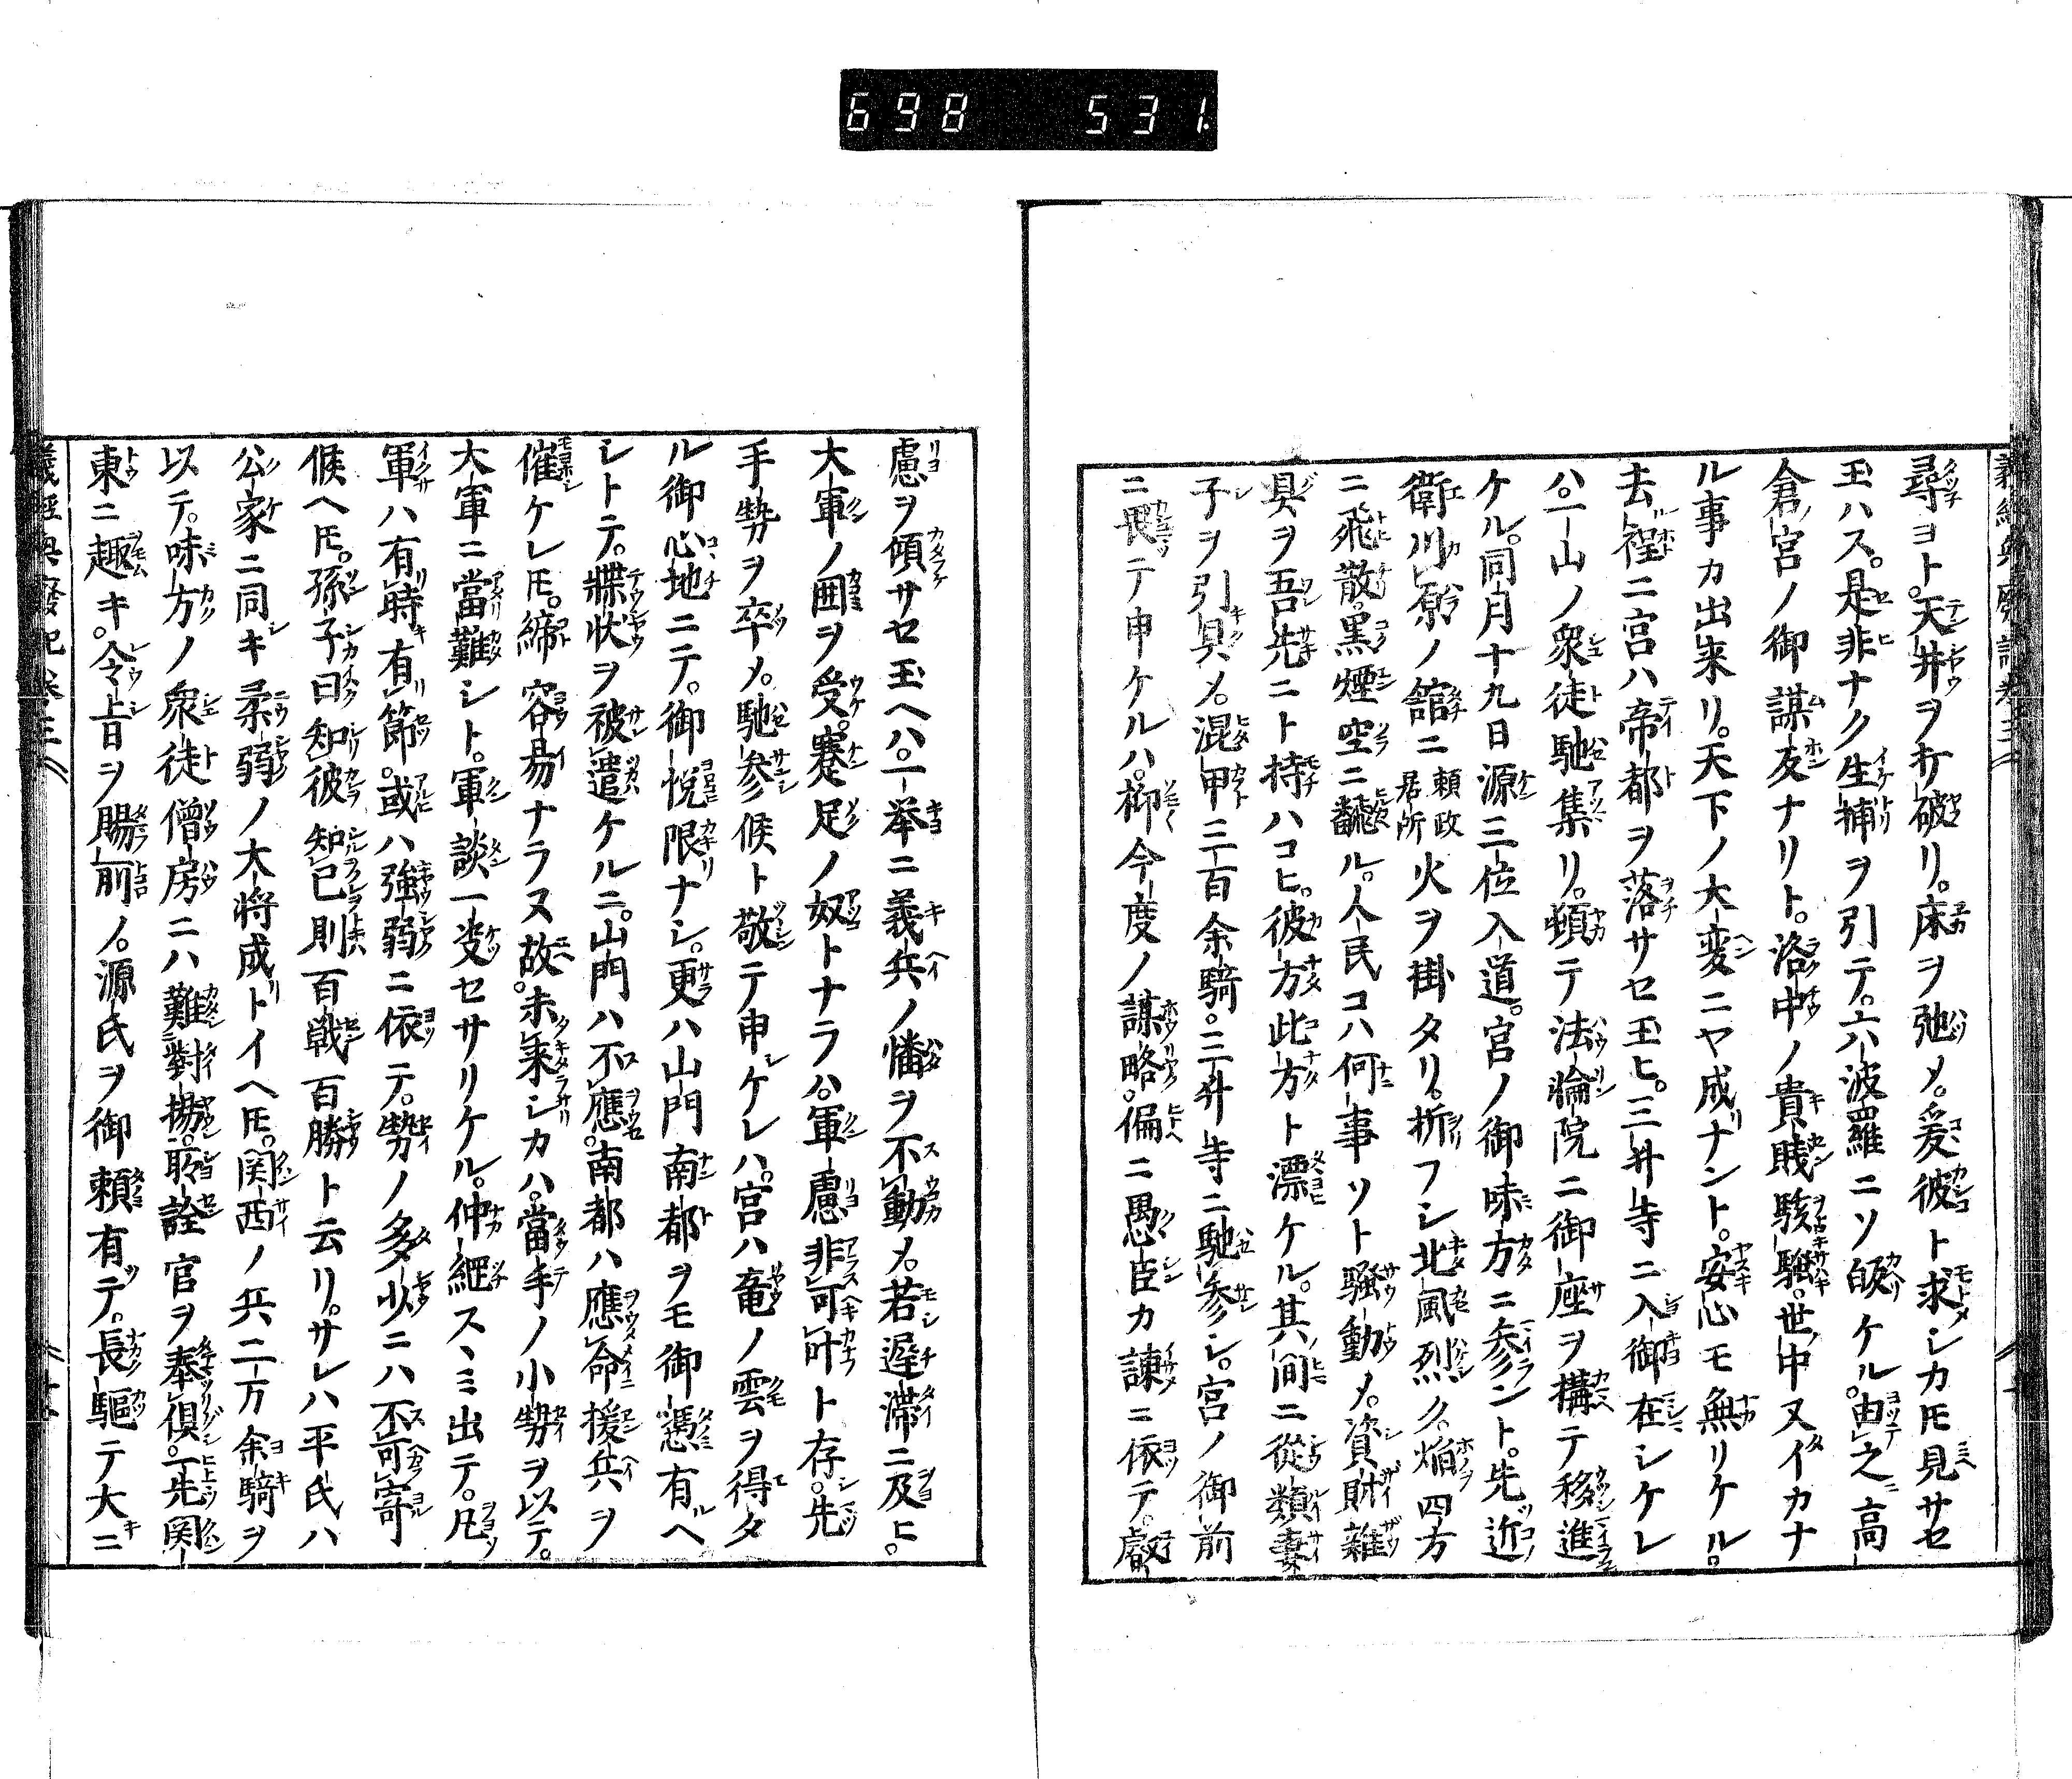 698 531
尋ヨト。天井ヲ打破リ。床ヲ弛メ。爰彼ト求シカ𪜈見サセ
玉ハス。是非ナク生捕ヲ引テ。六波羅ニソ皈ケル。由之高
倉ノ宮ノ御謀反ナリト。洛中ノ貴賤駭騒。世ノ中又イカナ
ル事カ出来リ。天下ノ大変ニヤ成ナント。安心モ無リケル。
去程ニ宮ハ帝都ヲ落サセ玉ヒ。三井寺ニ入御在シケレ
ハ。一山ノ衆徒馳集リ。頓テ法輪院ニ御座ヲ構テ移進
ケル。同月十九日源三位入道。宮ノ御味方ニ参ント。先近
衛川原ノ舘ニ頼政居所火ヲ掛タリ。折フシ北風烈ク。焔四方
ニ飛散。黒煙空ニ飜ル。人民コハ何事ソト騒動メ。資財雑
具ヲ吾先ニト持ハコヒ。彼方此方ト漂ケル。其間ニ從類妻
子ヲ引具メ。混甲三百余騎。三井寺ニ馳参シ。宮ノ御前
ニ畏テ申ケルハ。抑今度ノ謀略。偏ニ愚臣カ諫ニ依テ。叡
慮ヲ傾サセ玉ヘハ。一挙ニ義兵ノ幡ヲ不動メ。若遅滞ニ及ヒ。
大軍ノ囲ヲ受。蹇足ノ奴トナラハ。軍慮非可叶ト存。先
手勢ヲ卒メ。馳参候ト敬テ申ケレハ。宮ハ竜ノ雲ヲ得タ
ル御心地ニテ。御悦限ナシ。更ハ山門南都ヲモ御憑有ヘ
シトテ。牒状ヲ被遣ケルニ。山門ハ不應。南都ハ應命援兵ヲ
催ケレ𪜈。締容易ナラヌ故。未来シカハ。當手ノ小勢ヲ以テ。
大軍ニ當難シト。軍談一决セサリケル。仲綱スヽミ出テ。凡
軍ハ有時有節。或ハ強弱ニ依テ。勢ノ多少ニハ不可寄
候ヘ𪜈。孫子曰知彼知己則百戦百勝ト云リ。サレハ平氏ハ
公家ニ同キ柔弱ノ大将成トイヘ𪜈。関西ノ兵二万余騎ヲ
以テ。味方ノ衆徒僧房ニハ難對揚。所詮宮ヲ奉倶。一先関
東ニ趣キ。令旨ヲ賜前ノ。源氏ヲ御頼有テ。長驅テ大ニ